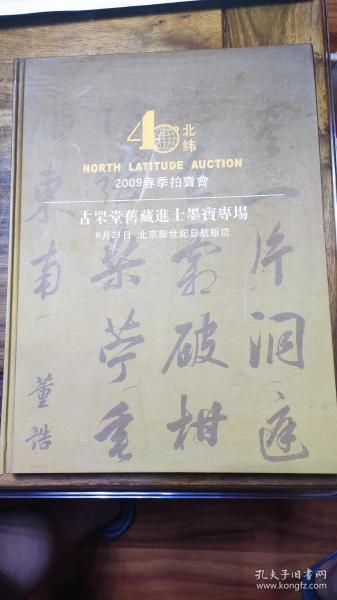 40
北纬
NORTH LATITUDE AUCTION
2009春季拍賣會
古罘堂舊藏進士墨寶專場
6月21日 北京新世纪日航飯店
一片洞庭
霜破柑
東南
董誥
孔夫子旧书网
www.kongfz.com